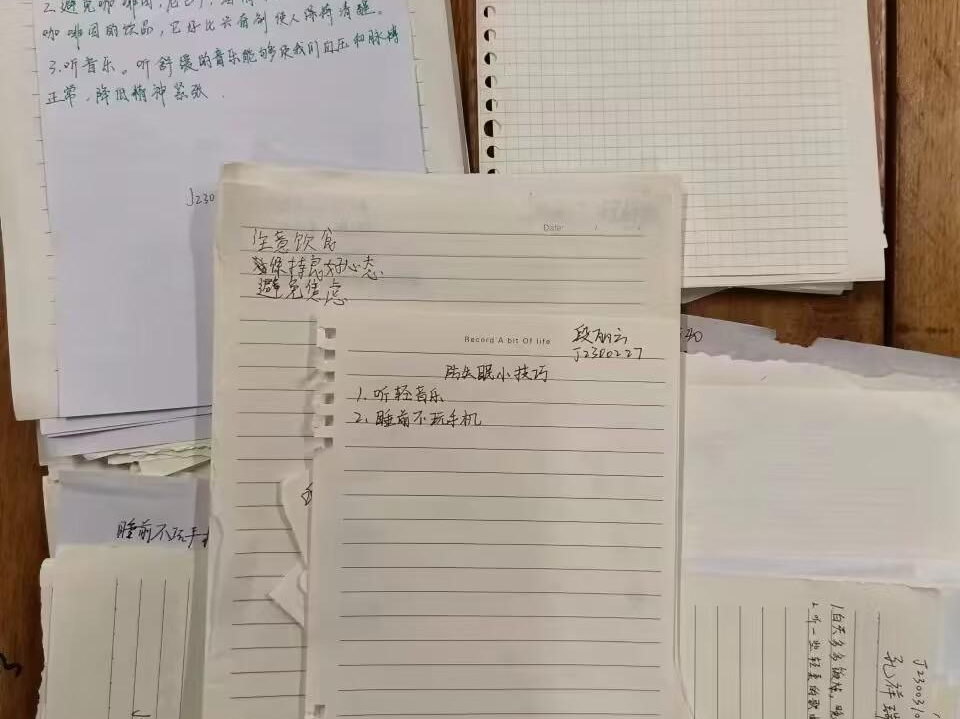 咖啡因的饮品,它好比兴奋剂使人保持清醒。
3.听音乐。听舒缓的音乐能够使我们血压和脉搏
正常,降低精神紧张.
J230
Date: / /
注意饮食
保持良好心态
避免焦虑
Record A bit Of life
段丽云
J2300227
防失眠小技巧
1. 听轻音乐
2. 睡前不玩手机
30
睡前不玩手
J23003
孔祥
1.白天多多锻炼,
2.听一些轻柔的歌